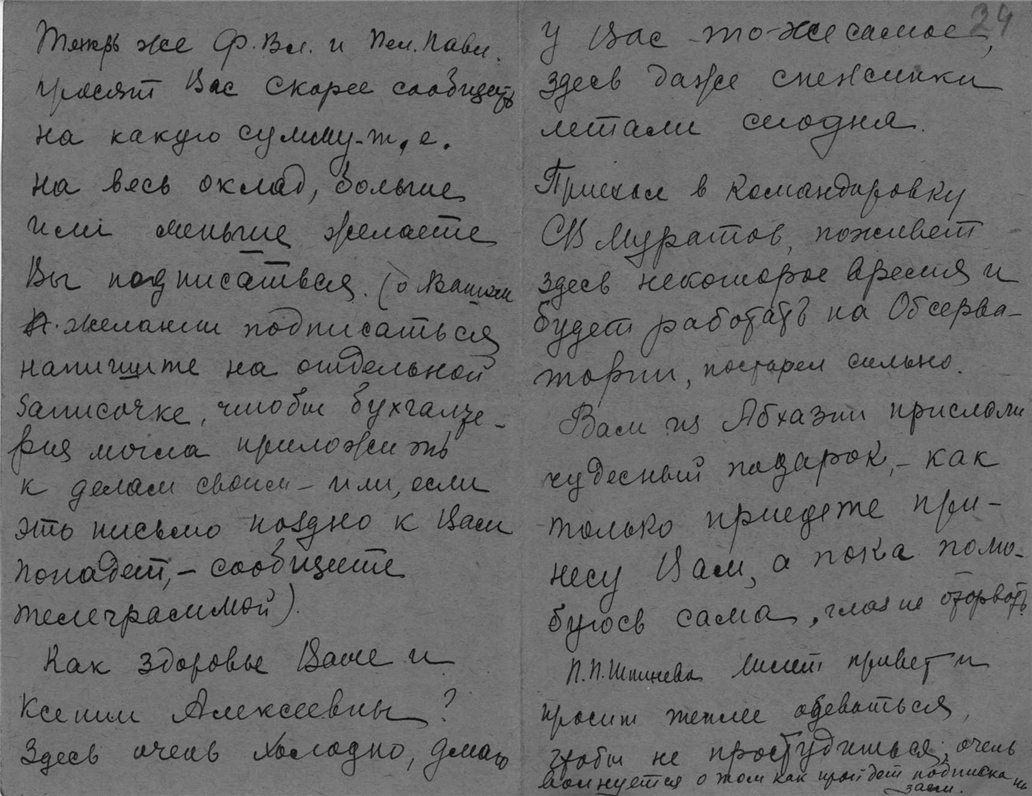 Теперь же Ф. Вл. и Пел. Павл.
просят Вас скорее сообщить
на какую сумму - т. е.
на весь оклад, больше
или меньше желаете
Вы подписаться. (о Вашем
желании подписаться
напишите на отдельной
записочке, чтобы бухгалте-
рия могла приложить
к делам своим - или, если
это письмо поздно к Вам
попадет, - сообщите
телеграммой).
Как здоровье Ваше и
Ксении Алексеевны?
Здесь очень холодно, думаю
24
у Вас то же самое,
здесь даже снежинки
летали сегодня.
Приехал в командировку
СВ Муратов, поживет
здесь некоторое время и
будет работать на Обсерва-
тории, постарел сильно.
Вам из Абхазии прислали
чудесный подарок, - как
только приедете при-
несу Вам, а пока полю-
буюсь сама, глаз не оторвать
П. П. Шпинева шлет привет и
просит теплее одеваться,
чтобы не простудиться, очень
волнуется о том как пройдет подписка на
заем.